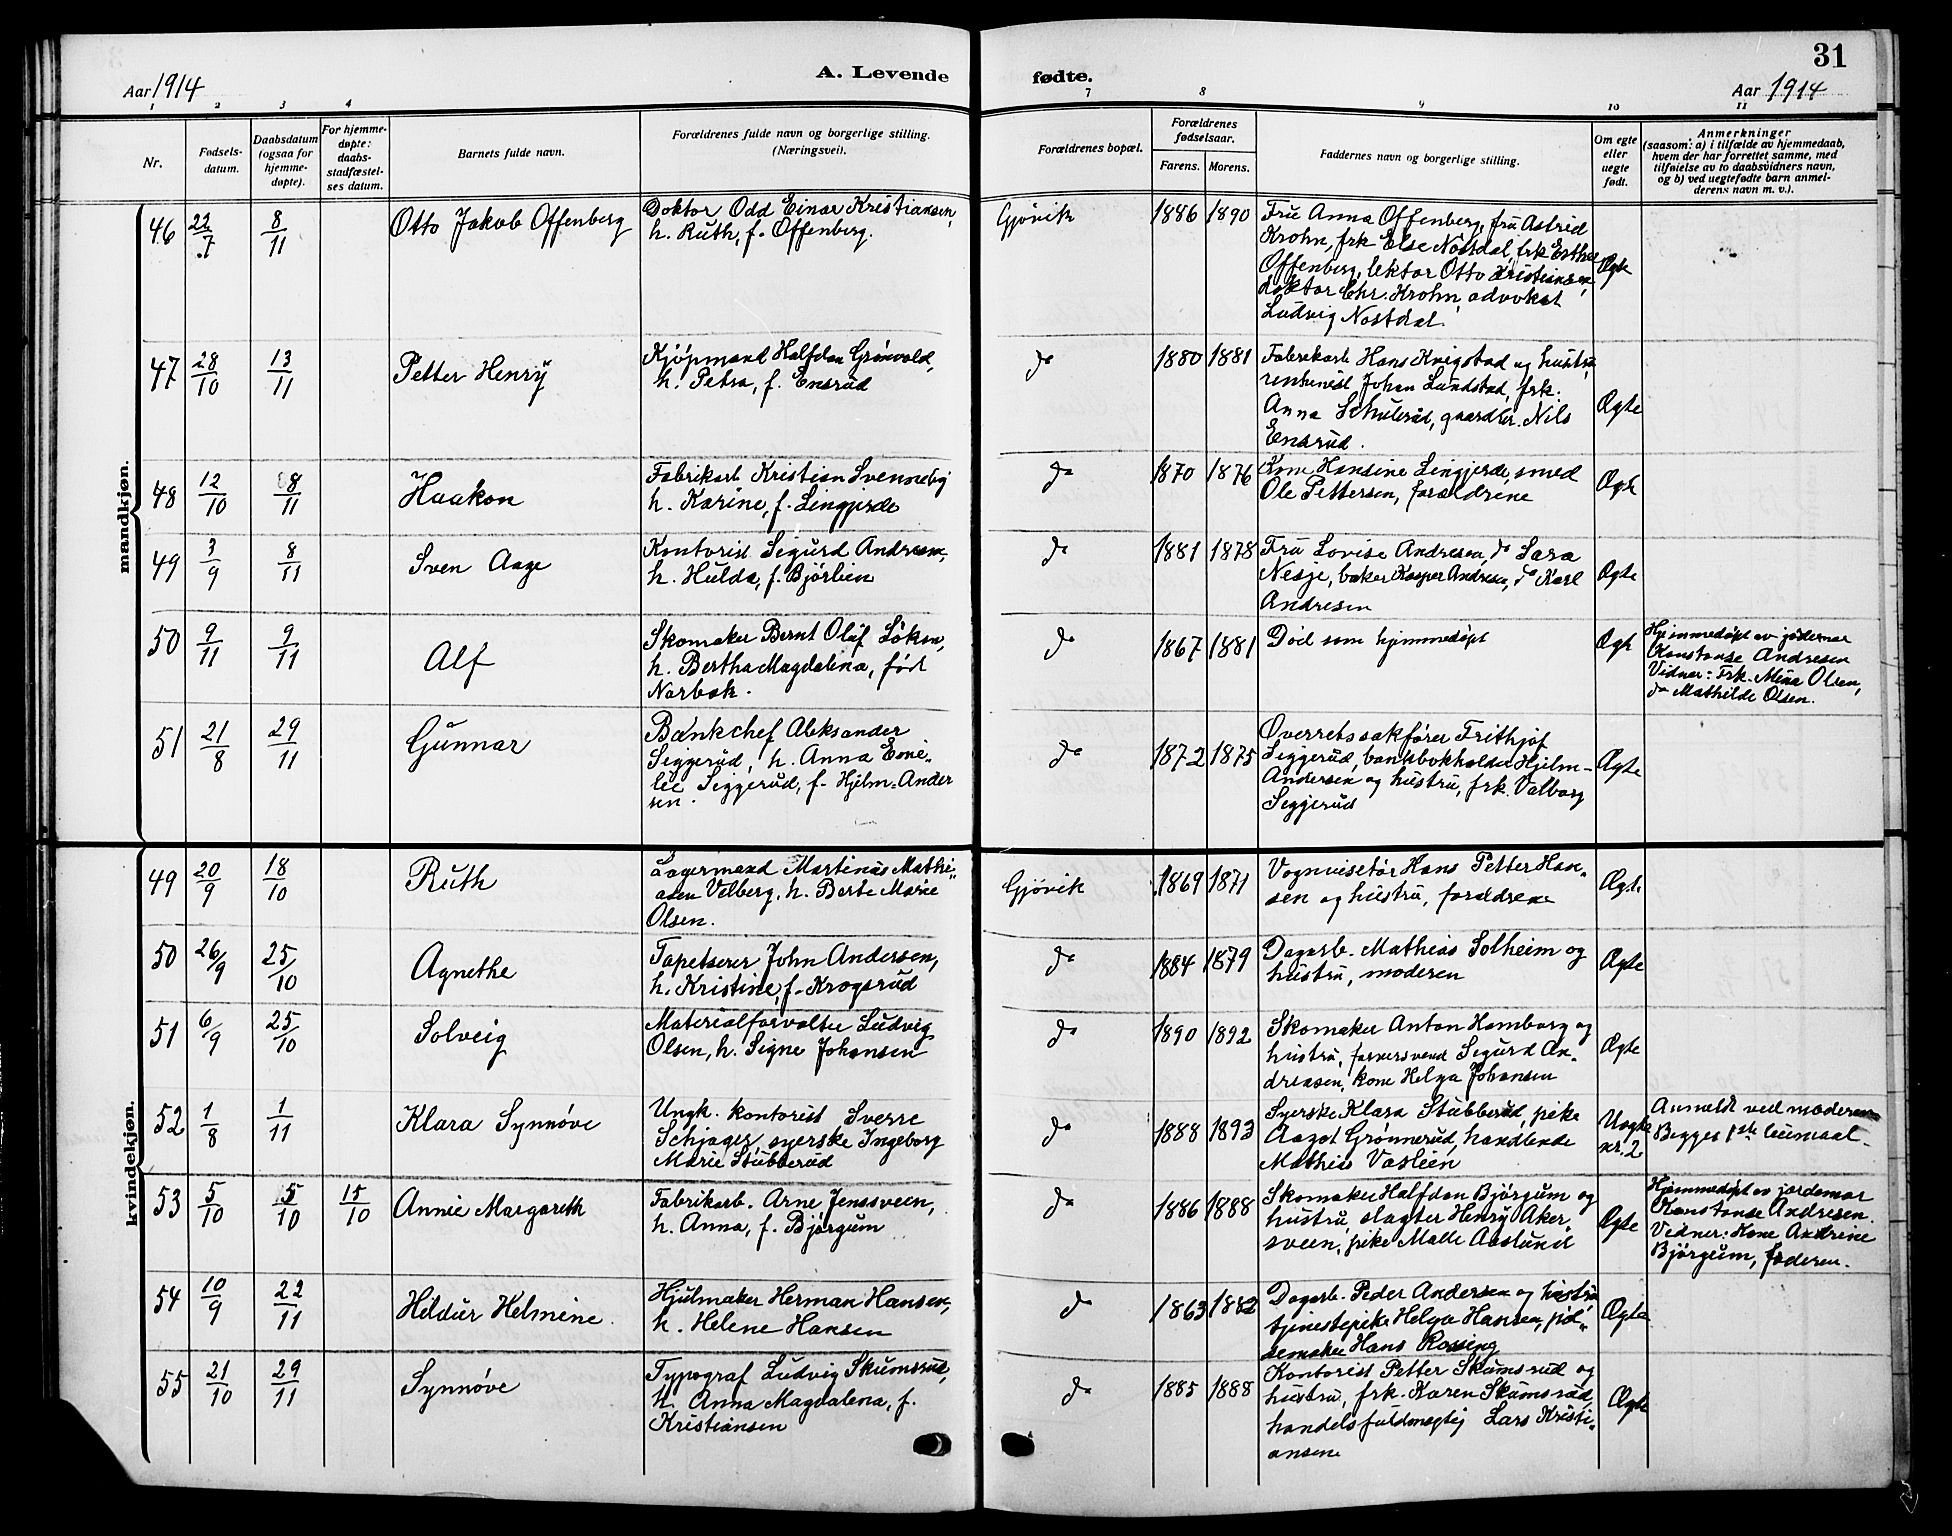 31
Aar 1914
A. Levende
fødte.
Aar 1914
1 2 3 4 7 8 9 10 11
Nr.
Fødsels-
datum.
Daabsdatum
(ogsaa for
hjemme-
døpte).
For hjemme-
døpte:
daabs-
stadfæstel-
ses datum.
Barnets fulde navn.
Forældrenes fulde navn og borgerlige stilling.
(Næringsvei).
Forældrenes bopæl.
Forældrenes
fødselsaar.
Farens. Morens.
Faddernes navn og borgerlige stilling.
Om egte
eller
uegte
født.
Anmerkninger
(saasom: a) i tilfælde av hjemmedaab,
hvem der har forrettet samme, med
tilføielse av to daabsvidners navn,
og b) ved uegtefødte barn anmel-
derens navn m. v.).
mandkjøn.
46 22/7 8/11 Otto Jakob Offenberg
Doktor Odd Einar Kristiansen,
h. Ruth, f. Offenberg.
Gjøvik 1886 1890
Fru Anna Offenberg, fru Astrid
Krohn, frk Else Nøstdal, frk Esther
Offenberg, lektor Otto Kristiansen,
doktor Chr. Krohn, advokat
Ludvig Nøstdal.
Ægte
47 28/10 13/11 Petter Henry
Kjøpmand Halfdan Grønvold,
h. Petra, f. Ensrud
do 1880 1881
Fabrikarb Hans Knigstad og hustru,
rentenist Johan Lundstad, frk.
Anna Schulerud, gaardbr. Nils
Ensrud.
Ægte
48 12/10 8/11 Haakon
Fabrikarb Kristian Svenneby
h. Karine, f. Lingjerde
do 1870 1876
Kone Hansine Lingjerde, smed
Ole Pettersen, forældrene
Ægte
49 3/9 8/11 Sven Aage
Kontorist Sigurd Andresen,
h. Hulda, f. Bjørlien
do 1881 1878
Fru Lovise Andresen, do Sara
Nesje, baker Kasper Andresen, do Karl
Andresen
Ægte
50 9/11 9/11 Alf
Skomaker Bernt Olaf Løken,
h. Bertha Magdalena, født
Norbak.
do 1867 1881
Død som hjemmedøpt
Ægte
Hjemmedøpt av jordemor
Konstanse Andresen
Vidner: Frk. Mina Olsen,
do Mathilde Olsen.
51 21/8 29/11 Gunnar
Bankchef Aleksander
Seggerud, h. Anna Eme-
lie Seggerud, f. Hjelm-Ander
sen.
do 1872 1875
Overretssakfører Frithjof
Seggerud, bankbokholder Hjelm-
Andersen og hustru, frk. Valborg
Seggerud
Ægte
kvindekjøn.
49 20/9 18/10 Ruth
Lagermand Martinus Mathi-
asen Velberg, h. Berte Marie
Olsen.
Gjøvik 1869 1871
Vognvisetør Hans Petter Han-
sen og hustru, forældrene
Ægte
50 26/9 25/10 Agnethe
Tapetserer John Andersen,
h. Kristine, f. Krogsrud
do 1884 1879
Dagarb. Mathias Solheim og
hustru, moderen
Ægte
51 6/9 25/10 Solveig
Materialforvalter Ludvig
Olsen, h. Signe Johansen
do 1890 1892
Skomaker Anton Hamborg og
hustru, farversvend Sigurd An-
dreasen, kone Helga Johansen
Ægte
52 1/8 1/11 Klara Synnøve
Ungk. kontorist Sverre
Schjager, syerske Ingeborg
Marie Stubberud
do 1888 1893
Syerske Klara Stubberud, pike
Aagot Grønnerud, handlende
Mathias Vaslien
Uægte
nr. 2
Anmeldt ved moderen
Begges 1ste leiemaal.
53 5/10 5/10 15/10 Annie Margareth
Fabrikarb. Arne Jenssveen,
h. Anna, f. Bjørgum
do 1886 1888
Skomaker Halfdan Bjørgum og
hustru, slagter Henry Aker-
sveen, pike Malle Aaslund
Ægte
Hjemmedøpt av jordemor
Konstanse Andresen.
Vidner: Kone Andrine
Bjørgum, faderen.
54 10/9 22/11 Hildur Helmine.
Hjulmaker Herman Hansen,
h. Helene Hansen
do 1863 1882
Dagarb. Peder Andersen og hustru
tjenestepike Helga Hansen, pøl-
semaker Hans Rossing
Ægte
55 21/10 29/11 Synnøve
Typograf Ludvig Skumsrud,
h. Anna Magdalena, f.
Kristiansen
do 1885 1888
Kontorist Petter Skumsrud og
hustru, frk. Karen Skumsrud,
handelsfuldmægtig Lars Kristi-
ansen
Ægte